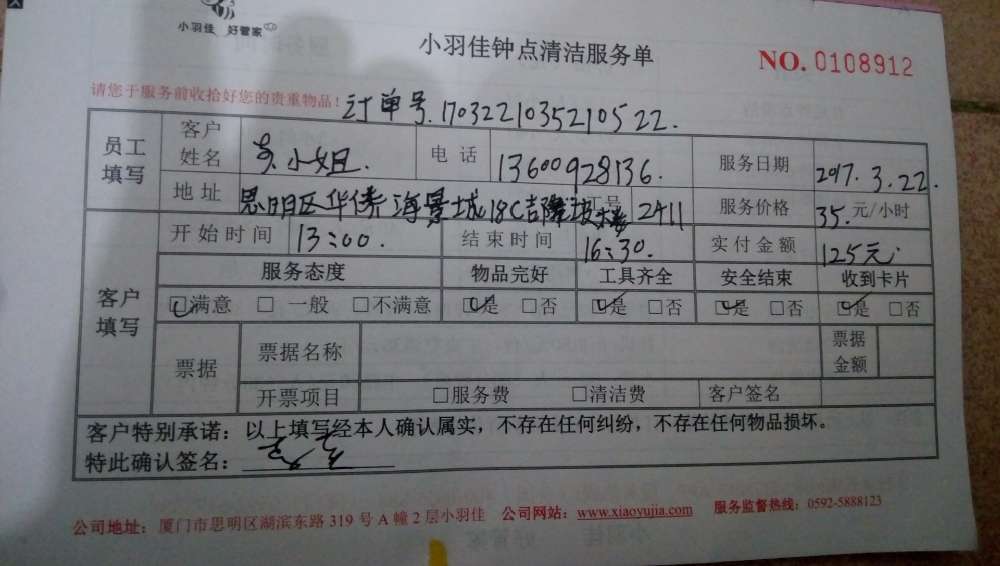 小羽佳 好管家
小羽佳钟点清洁服务单
NO. 0108912
请您于服务前收拾好您的贵重物品！订单号.1703221035210522.
员工填写 客户姓名 吴小姐. 电话 13600928136. 服务日期 2017.3.22.
地址 思明区华侨海景城18C吉隆坡 工号 2411 服务价格 35.元/小时
开始时间 13:00. 结束时间 16:30. 实付金额 125元.
客户填写 服务态度 物品完好 工具齐全 安全结束 收到卡片
☑满意 □一般 □不满意 ☑是 □否 ☑是 □否 ☑是 □否 ☑是 □否
票据 票据名称 票据金额
开票项目 □服务费 □清洁费 客户签名
客户特别承诺：以上填写经本人确认属实，不存在任何纠纷，不存在任何物品损坏。
特此确认签名：
公司地址：厦门市思明区湖滨东路 319 号 A 幢 2 层小羽佳 公司网站：www.xiaoyujia.com 服务监督热线：0592-5888123